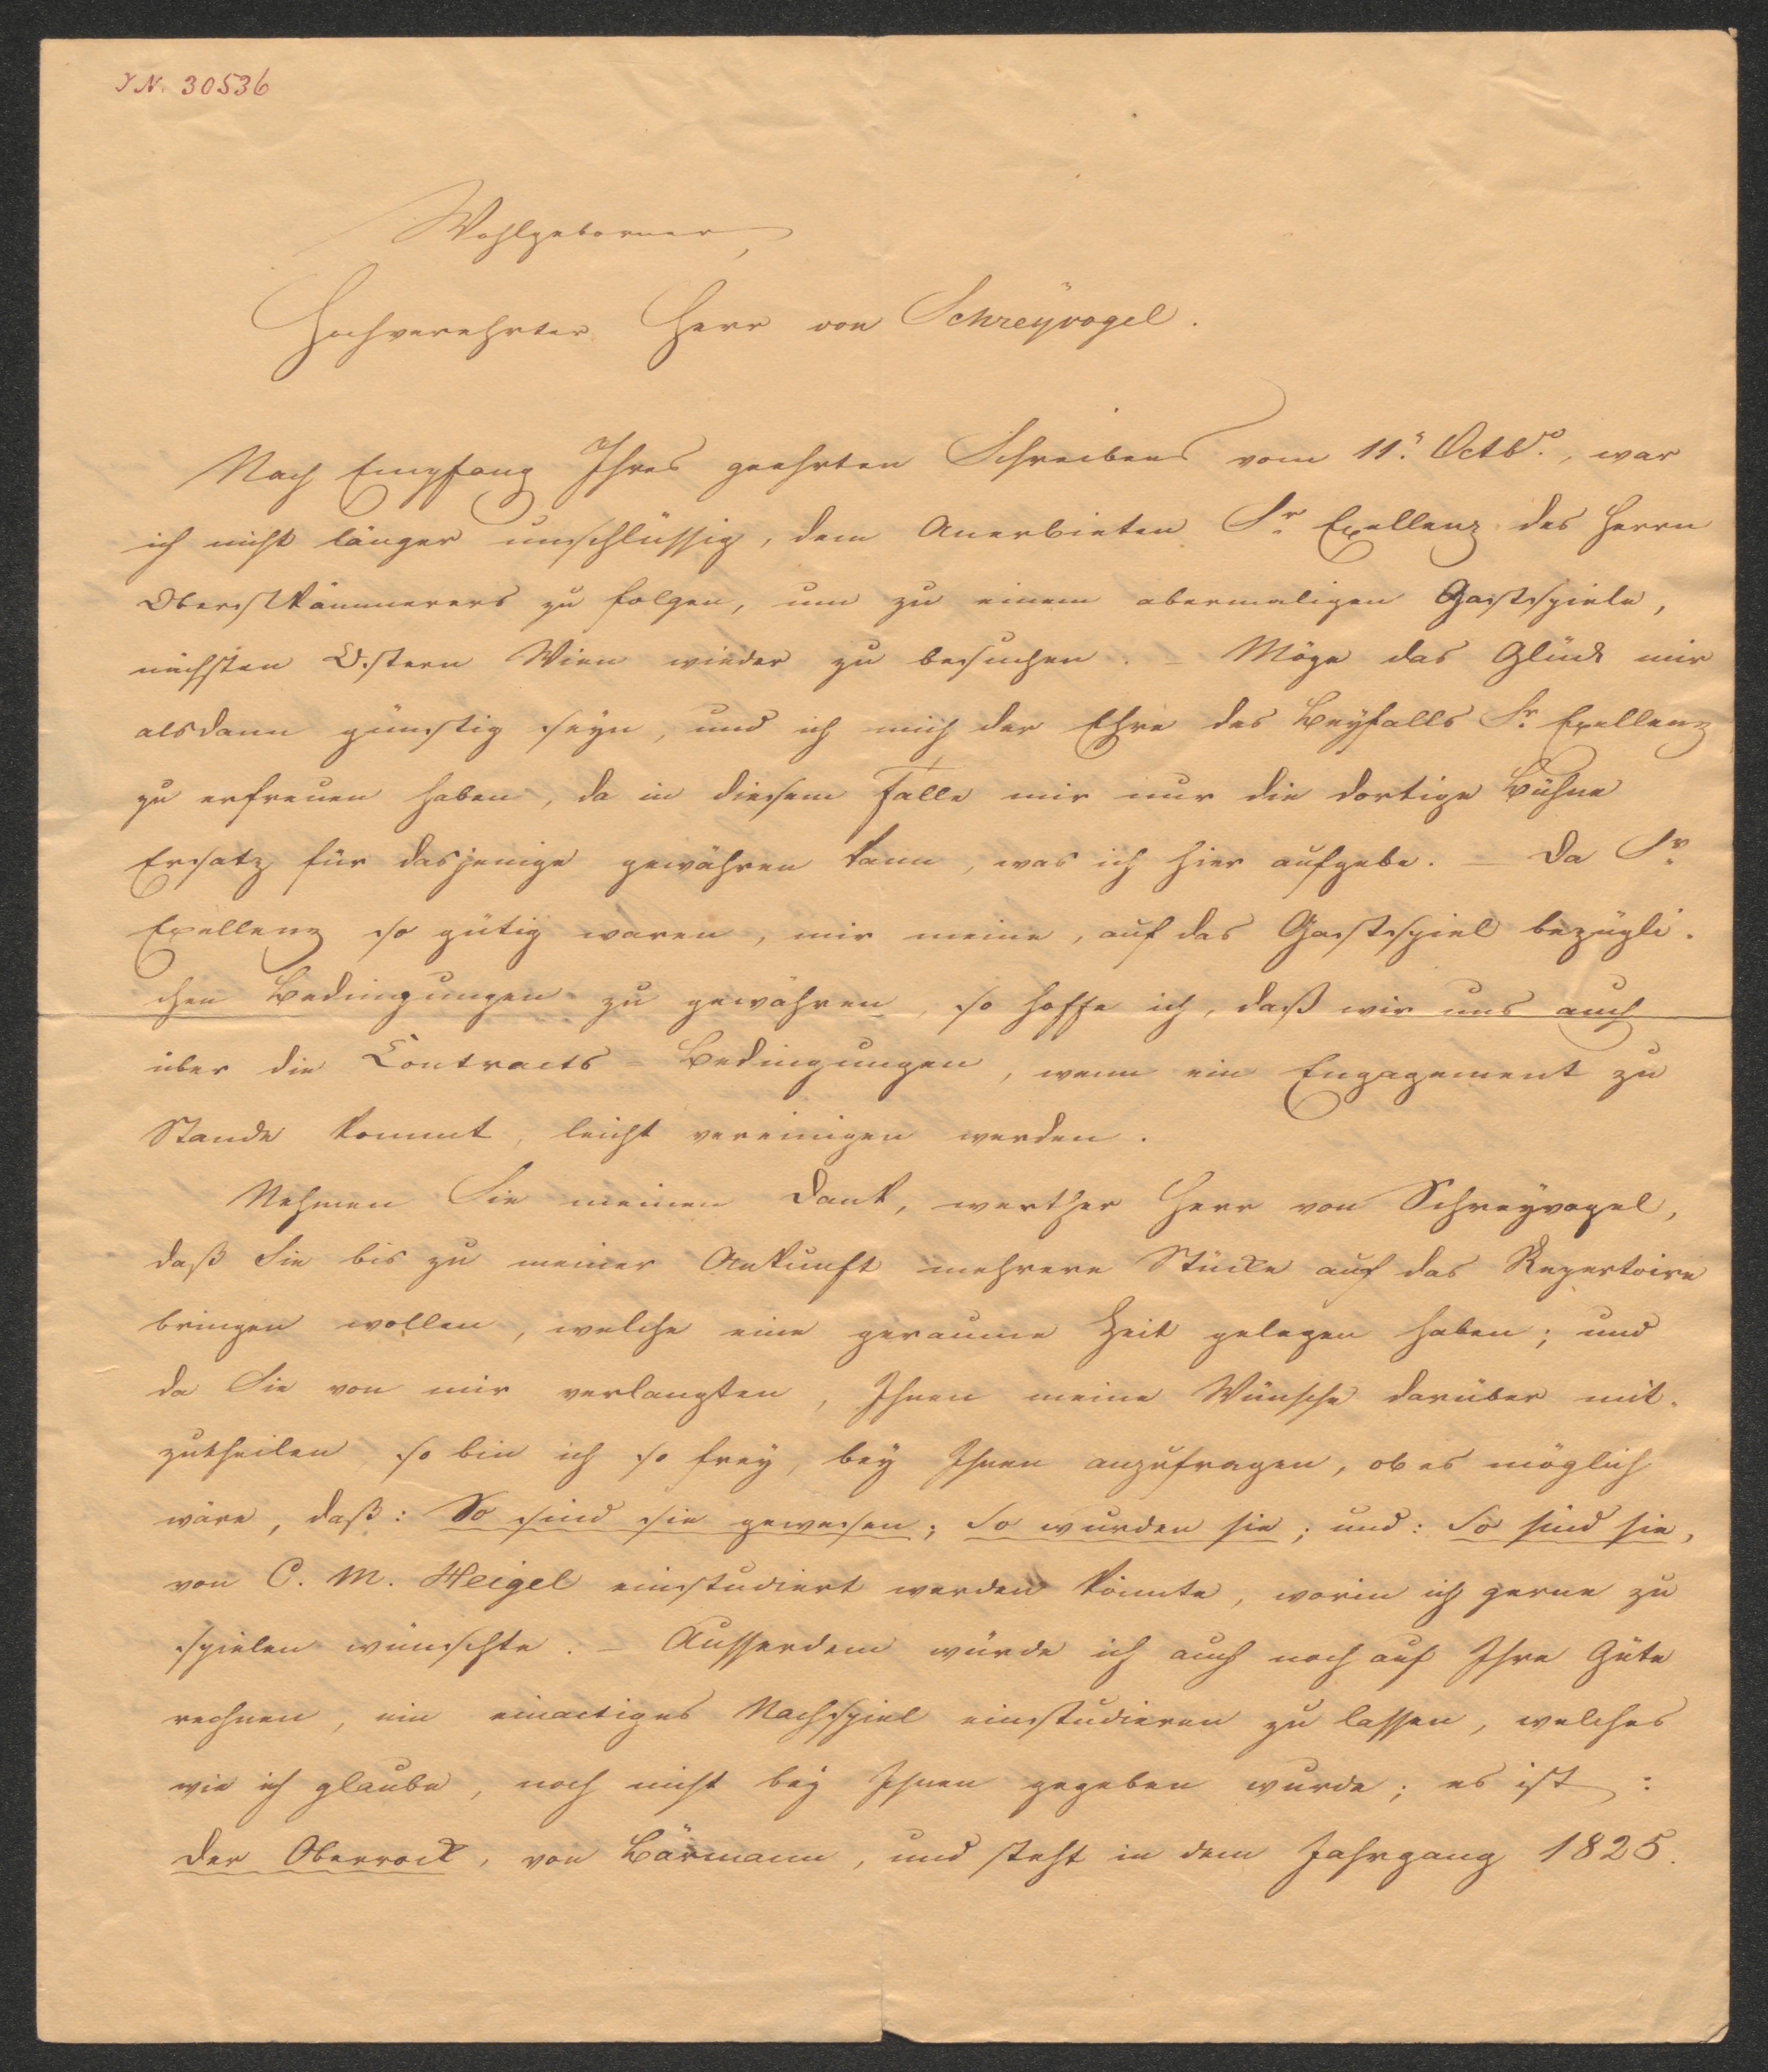 I N. 30536
Wohlgeborner,
Hochverehrter Herr von Schreÿvogel.
Nach Empfang Ihres geehrten Schreibens vom 11t. Octbr., war
ich nicht länger unschlüssig, dem Anerbieten Sr. Exellenz des Herrn
Oberstkämmerers zu folgen, um zu einem abermaligen Gastspiele,
nächsten Ostern Wien wieder zu besuchen. – Möge das Glück mir
alsdann günstig seyn, und ich mich der Ehre des Beyfalls Sr. Exellenz
zu erfreuen haben, da in diesem Falle mir nur die dortige Bühne
Ersatz für dasjenige gewähren kann, was ich hier aufgebe. – Da Sr.
Exellenz so gütig waren, mir meine, auf das Gastspiel bezügli-
chen Bedingungen zu gewähren, so hoffe ich, daß wir uns auch
über die Contracts-Bedingungen, wenn ein Engagement zu
Stande kommt, leicht vereinigen werden.
Nehmen Sie meinen Dank, werther Herr von Schreÿvogel,
daß Sie bis zu meiner Ankunft mehrere Stücke auf das Repertoire
bringen wollen, welche eine geraume Zeit gelegen haben; und
da Sie von mir verlangten, Ihnen meine Wünsche darüber mit-
zutheilen, so bin ich so freÿ, beÿ Ihnen anzufragen, ob es möglich
wäre, daß: So sind sie gewesen; So wurden sie; und: So sind sie,
von C. M. Heigel einstudiert werden könnte, worin ich gerne zu
spielen wünschte. – Ausserdem würde ich auch noch auf Ihre Güte
rechnen, ein einactiges Nachspiel einstudieren zu lassen, welches
wie ich glaube, noch nicht beÿ Ihnen gegeben wurde; es ist:
Der Oberrock, von Bärmann, und steht in dem Jahrgang 1825.